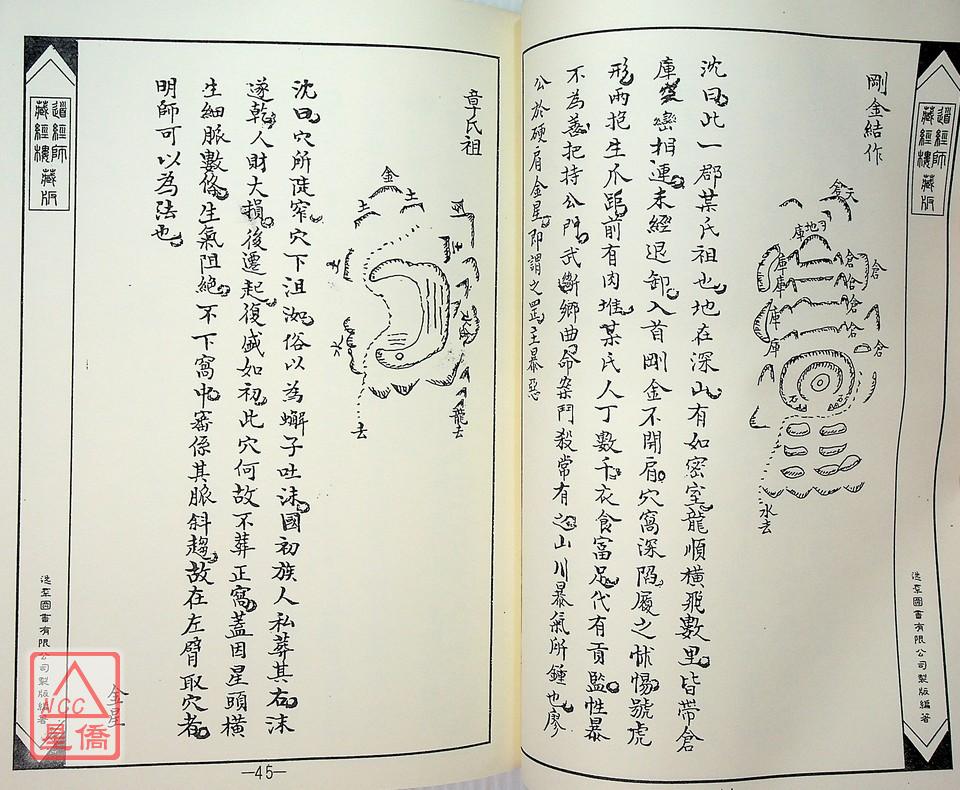 道經師
藏經樓藏版
剛金結作
天
倉
地
庫
倉
倉
倉
倉
倉
倉
庫
庫
庫
庫
水去
沈曰此一郡某氏祖也地在深山有如密室龍順橫飛數里皆帶倉
庫巒相連未經退卸入首剛金不開肩穴窩深陷履之怵惕號虎
形兩抱生爪距前有肉堆某氏人丁數千衣食富足代有貢監性暴
不為善把持公門武斷鄉曲命案鬥殺常有之山川暴氣所鍾也廖
公於硬肩金星即謂之罵王暴惡
逸羣圖書有限公司製版編著
章氏祖
金
土
土
土
水
去
龍去
沈曰穴所陡窄穴下沮洳俗以為蠏子吐沫國初族人私葬其右沫
遂乾人財大損後遷起復盛如初此穴何故不葬正窩蓋因星頭橫
生細脈數條生氣阻絕不下窩中審係其脈斜趨故在左臂取穴者
明師可以為法也
金星
道經師
藏經樓藏版
逸羣圖書有限公司製版編著
NCC
星僑
—45—